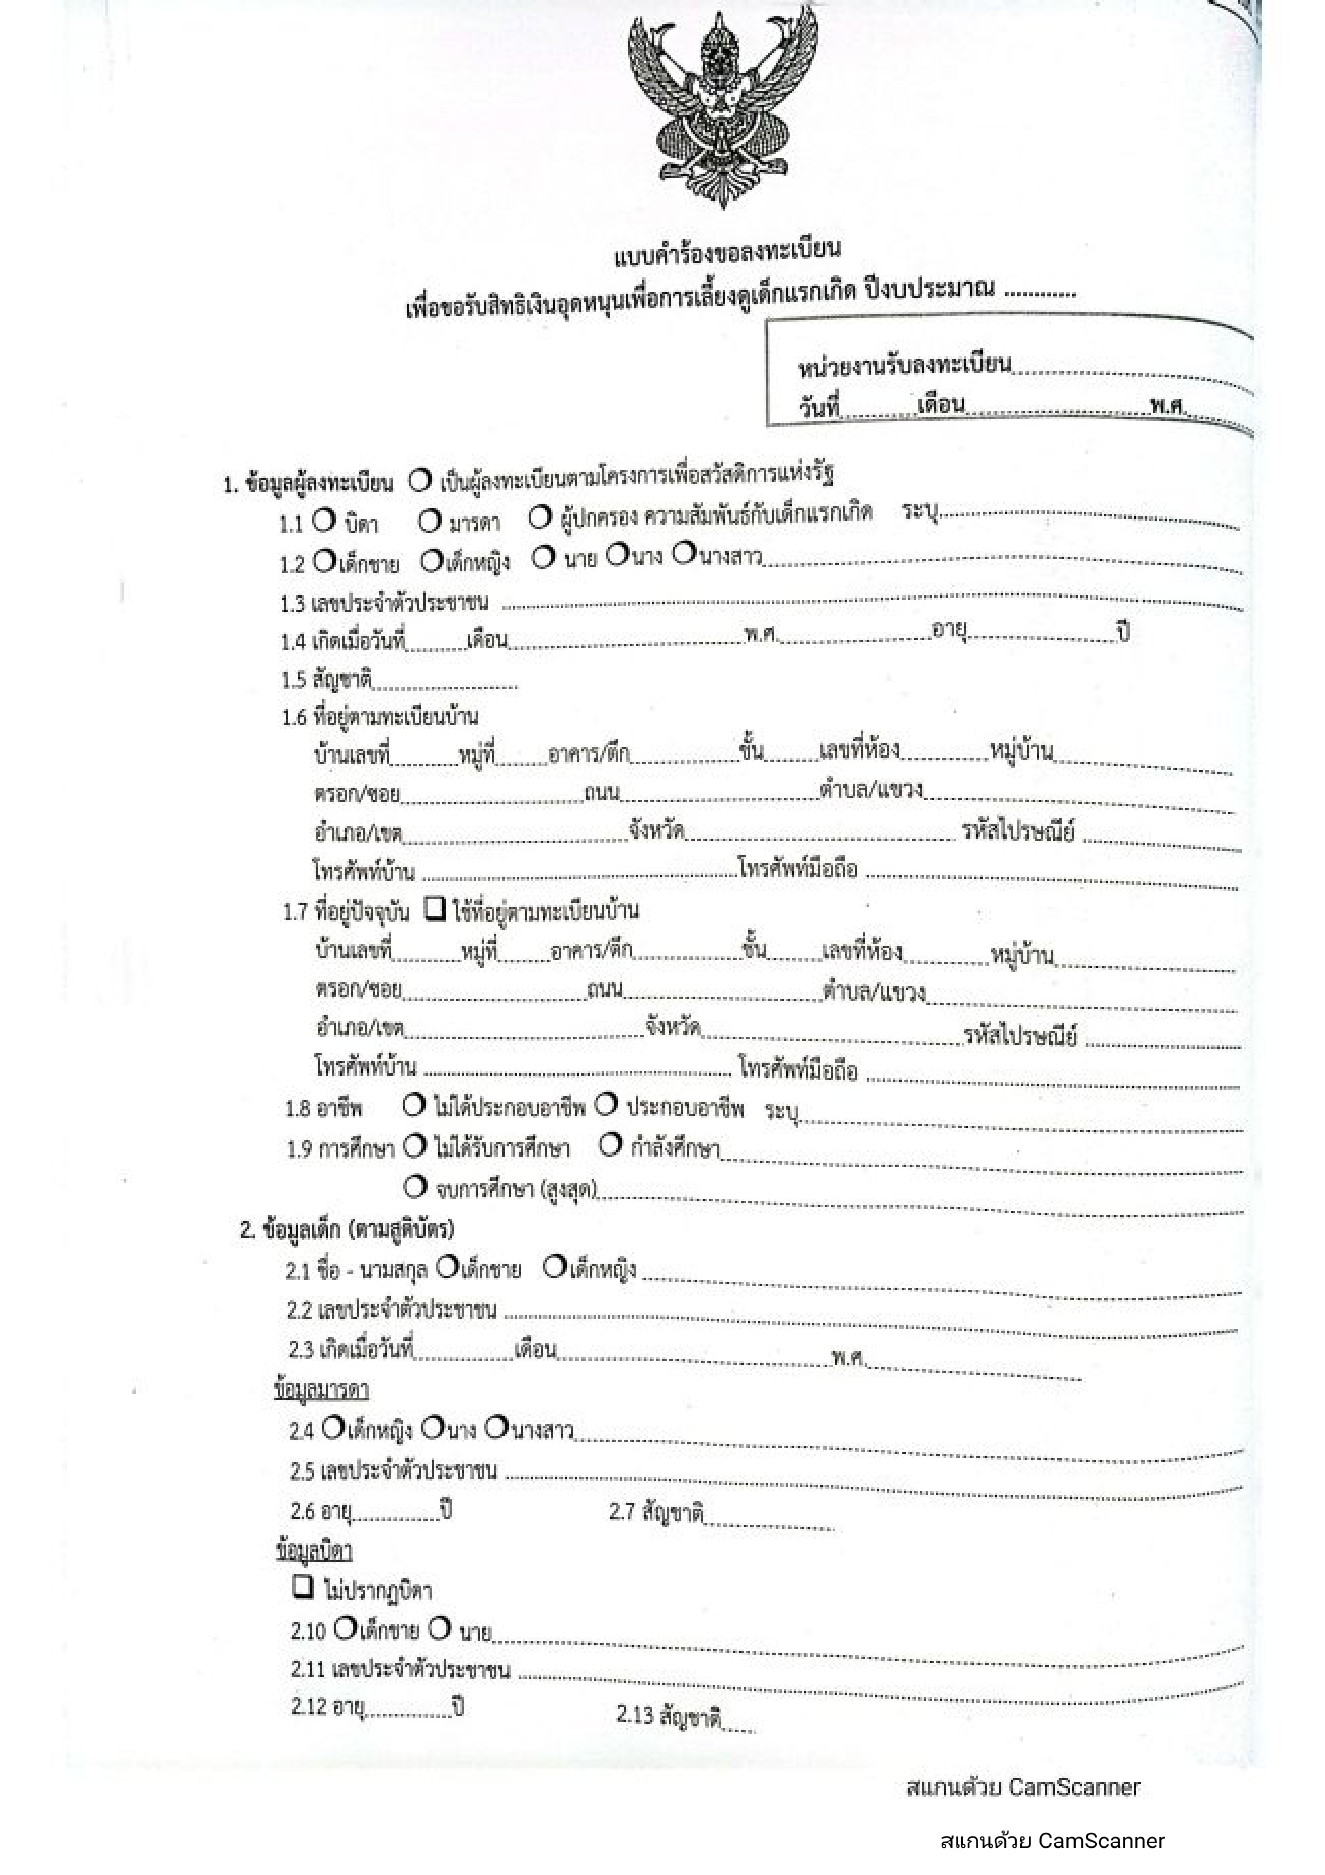 แบบคำร้องขอลงทะเบียน
เพื่อขอรับสิทธิเงินอุดหนุนเพื่อการเลี้ยงดูเด็กแรกเกิด ปีงบประมาณ ............
หน่วยงานรับลงทะเบียน..............................
วันที่..........เดือน..............................พ.ศ..........
1. ข้อมูลผู้ลงทะเบียน ○ เป็นผู้ลงทะเบียนตามโครงการเพื่อสวัสดิการแห่งรัฐ
1.1 ○ บิดา ○ มารดา ○ ผู้ปกครอง ความสัมพันธ์กับเด็กแรกเกิด ระบุ..............................
1.2 ○เด็กชาย ○เด็กหญิง ○ นาย ○นาง ○นางสาว..............................
1.3 เลขประจำตัวประชาชน ..............................
1.4 เกิดเมื่อวันที่..........เดือน..............................พ.ศ....................อายุ....................ปี
1.5 สัญชาติ....................
1.6 ที่อยู่ตามทะเบียนบ้าน
บ้านเลขที่..........หมู่ที่........อาคาร/ตึก................ชั้น........เลขที่ห้อง............หมู่บ้าน....................
ตรอก/ซอย....................ถนน....................ตำบล/แขวง..............................
อำเภอ/เขต....................จังหวัด.............................. รหัสไปรษณีย์ ....................
โทรศัพท์บ้าน ..............................โทรศัพท์มือถือ ..............................
1.7 ที่อยู่ปัจจุบัน ❑ ใช้ที่อยู่ตามทะเบียนบ้าน
บ้านเลขที่..........หมู่ที่........อาคาร/ตึก................ชั้น........เลขที่ห้อง............หมู่บ้าน....................
ตรอก/ซอย....................ถนน....................ตำบล/แขวง..............................
อำเภอ/เขต....................จังหวัด..............................รหัสไปรษณีย์ ....................
โทรศัพท์บ้าน .............................. โทรศัพท์มือถือ ..............................
1.8 อาชีพ ○ ไม่ได้ประกอบอาชีพ ○ ประกอบอาชีพ ระบุ..............................
1.9 การศึกษา ○ ไม่ได้รับการศึกษา ○ กำลังศึกษา..............................
○ จบการศึกษา (สูงสุด)..............................
2. ข้อมูลเด็ก (ตามสูติบัตร)
2.1 ชื่อ - นามสกุล ○เด็กชาย ○เด็กหญิง..............................
2.2 เลขประจำตัวประชาชน ..............................
2.3 เกิดเมื่อวันที่..............เดือน..............................พ.ศ..............................
ข้อมูลมารดา
2.4 ○เด็กหญิง ○นาง ○นางสาว..............................
2.5 เลขประจำตัวประชาชน ..............................
2.6 อายุ..............ปี 2.7 สัญชาติ....................
ข้อมูลบิดา
❑ ไม่ปรากฏบิดา
2.10 ○เด็กชาย ○ นาย..............................
2.11 เลขประจำตัวประชาชน ..............................
2.12 อายุ..............ปี 2.13 สัญชาติ.....
สแกนด้วย CamScanner
สแกนด้วย CamScanner